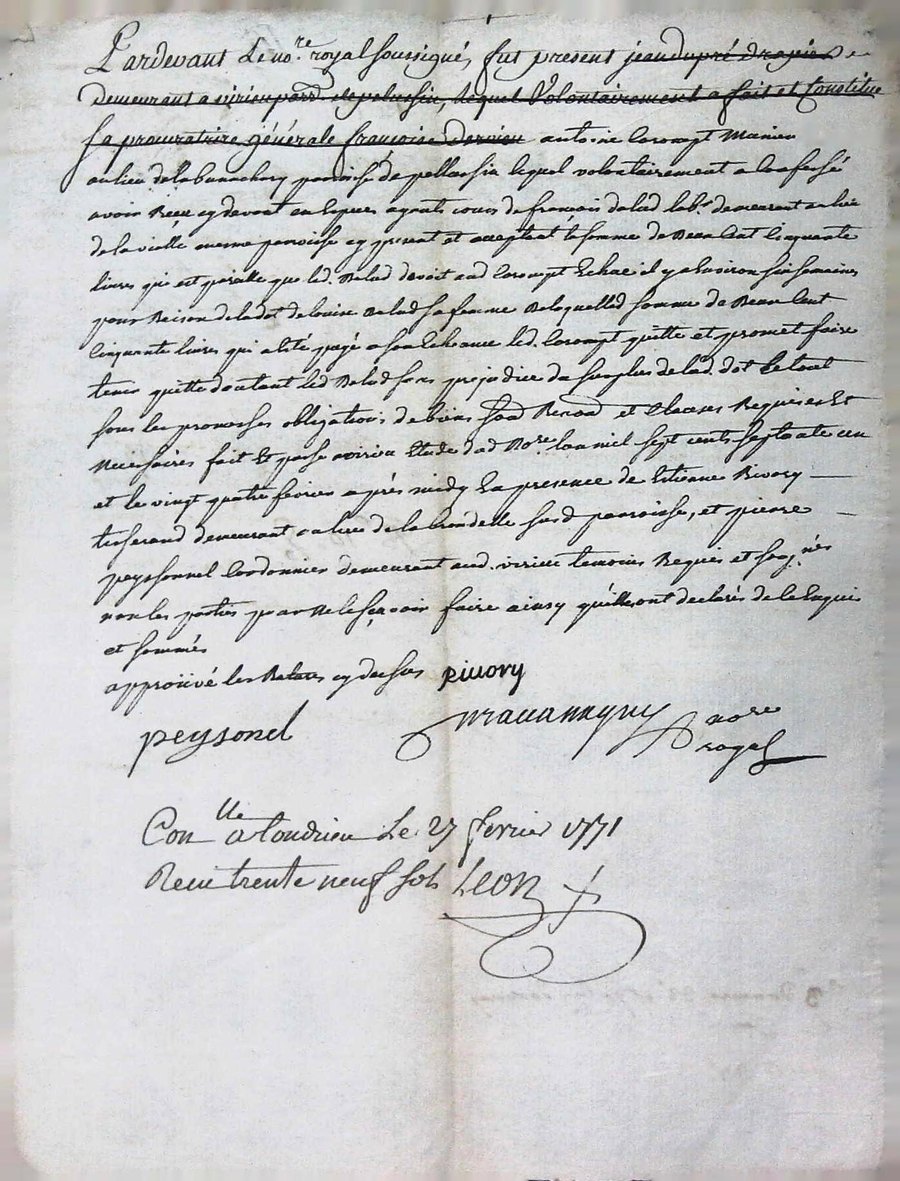 Pardevant Le no.re royal soussigné, fut present jean dupré drapier
demeurant a virieu par.d de pelussin, lequel Volontairement a fait et Constitue
sa procuratrice générale françoise dervieu antoine Corompt
au lieu de la paroisse de pellussin lequel volontairement a confessé
avoir Receu cy devant en especes agents cours de françois Balad lab.r demeurant au lieu
de la vialle mesme paroisse cy present et acceptant la somme de Deux Cent Cinquante
livres qui est pareille que led. Balad devoit aud Corompt Echue il y a Environ six semaines
pour Raison de la dot de Balad sa femme De laquelled somme de Deux Cent
Cinquante livres qui a Eté payé a son Echeance led. Corompt quitte et promet faire
tenir quitte dautant led Balad sans prejudice du surplus de lad. dot Le tout
sous les promesses obligations de biens et Clauses Requises Et
Necessaires fait Et passé a virieu Etude dud No.re Lan mil sept cents septante un
et le vingt quatre fevrier après midy En presence de Etienne Rivory
tisserand demeurant au lieu de la susd parroisse, et pierre
peyssonnel Cordonnier demeurant aud. virieu temoins Requis et soug.nés
non les parties pour Ne le sçavoir faire ainsy qu'elles ont declarés de ce Enquis
et sommés
approuvé les Ratures cy dessus Rivory
peysonel no.re
royal
Con.lle a Condrieu Le 27 fevrier 1771
Receu trente neuf sols LEON